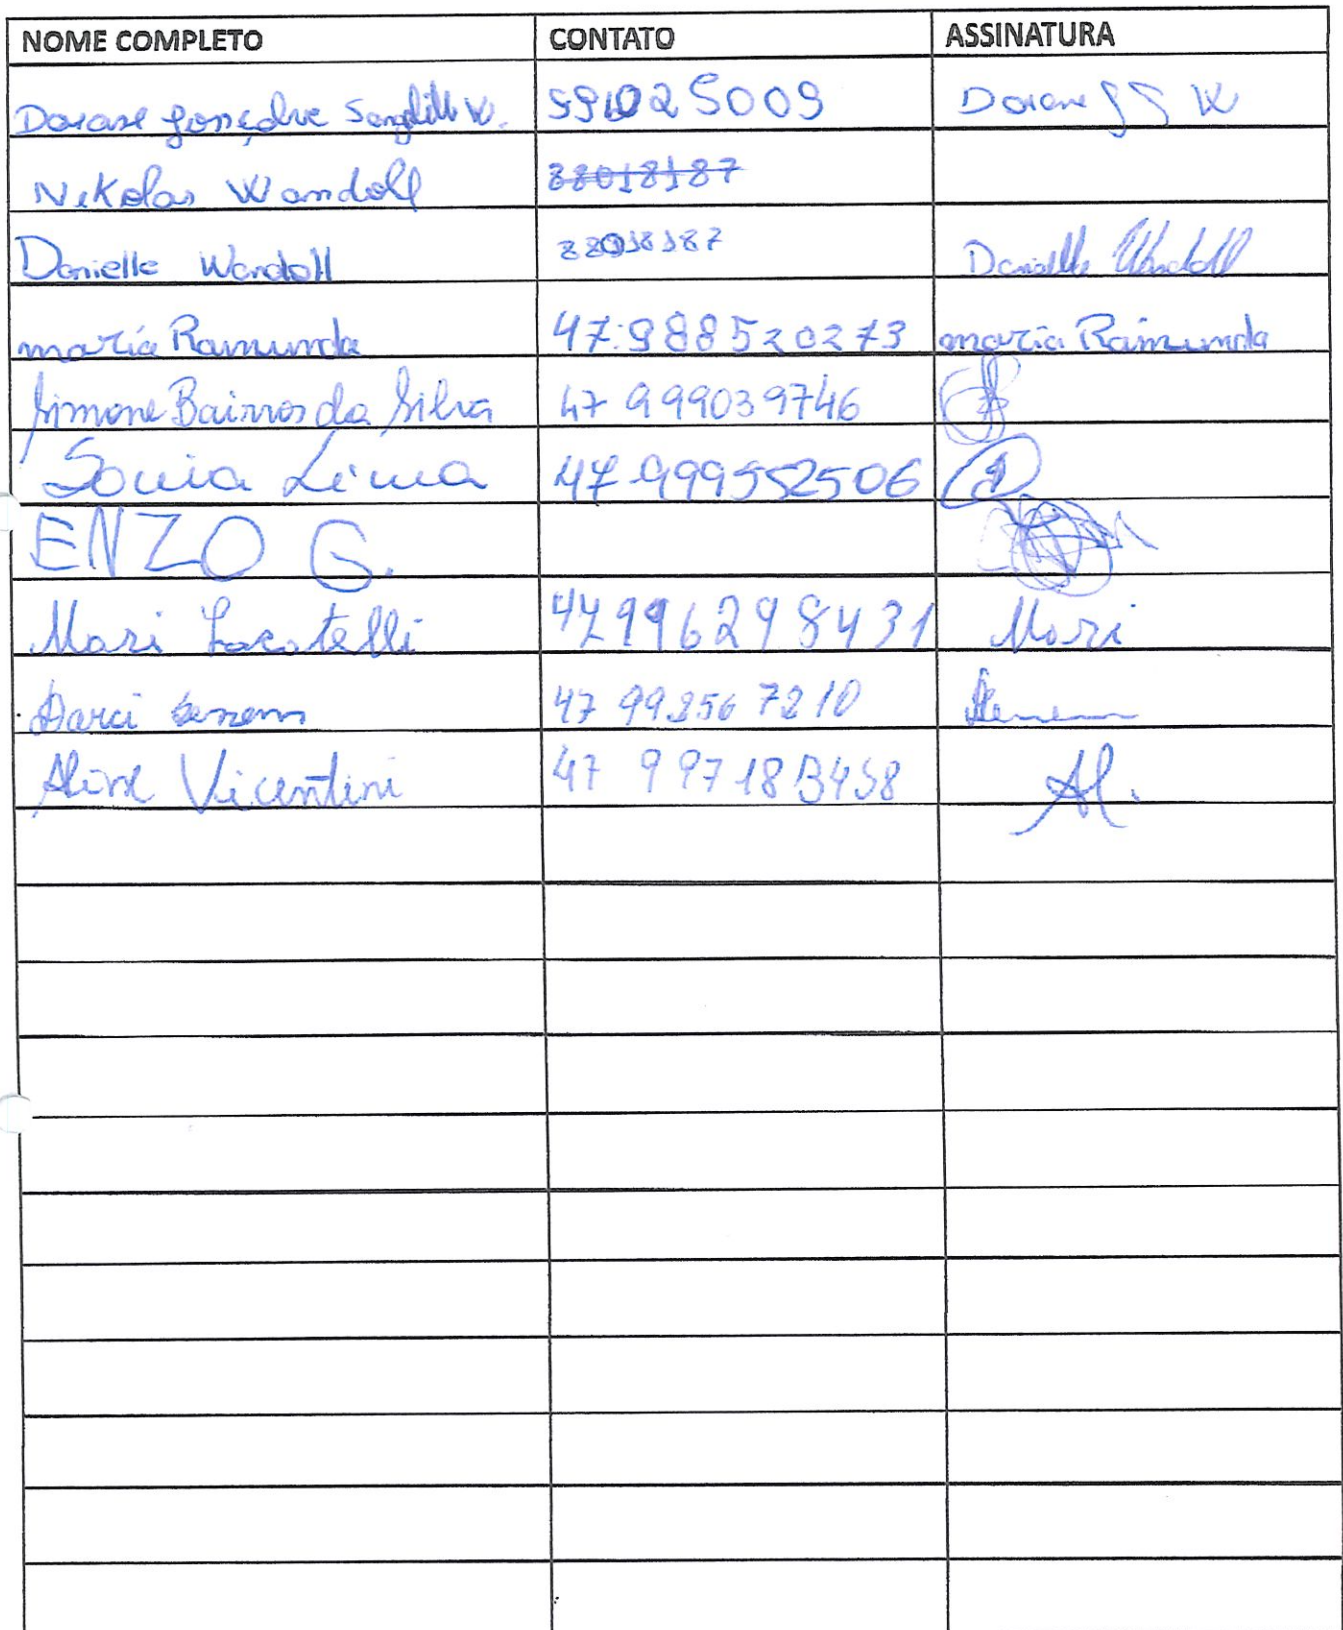 NOME COMPLETO CONTATO ASSINATURA
Dorane Gonçalve W. 991025009 Dorane G S W
Nikolas Wandall 88018187
Danielle Wandall 88018187 Danielle Wandall
maria Ramunda 47:988520273 maria Raimunda
Simone Bairros da Silva 47 999039746
Sonia Lima 47 999552506
ENZO G.
Mari Locatelli 47996298431 Mari
Darci 47 99256 7210
Aline Vicentini 47 997183458 Al.